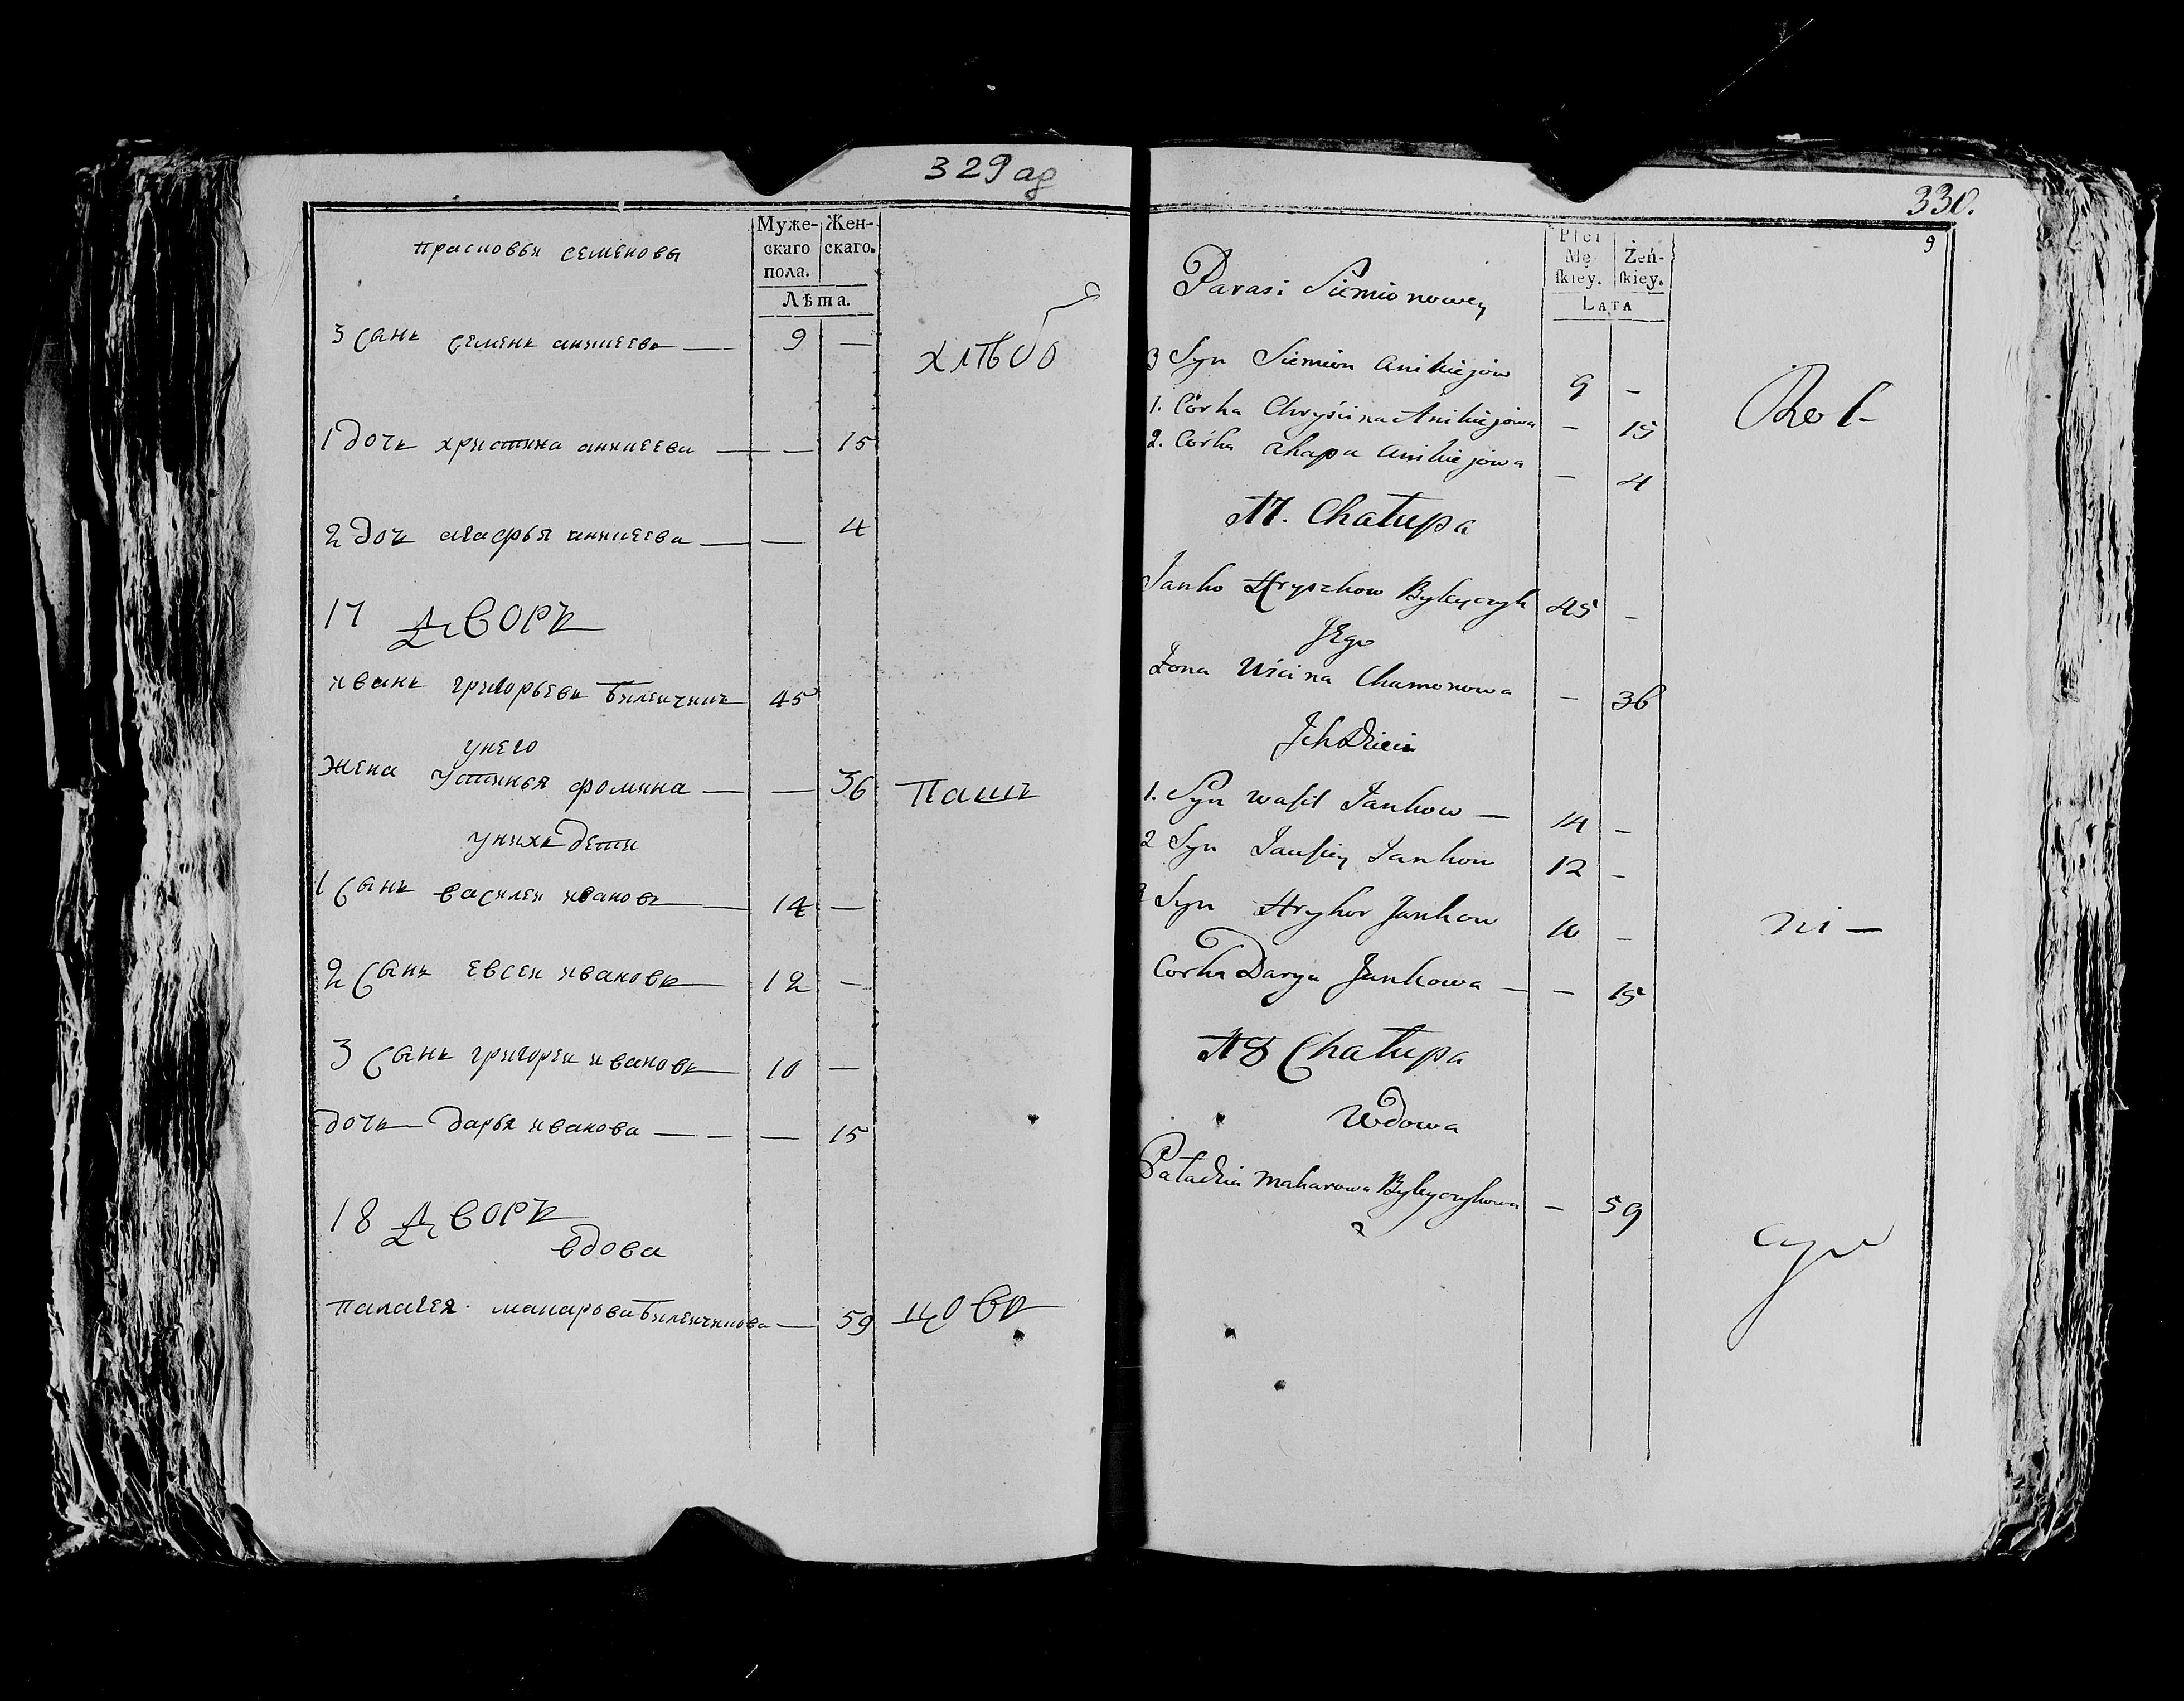 329 об
прасковья семенова
Муже-
скаго
пола.
Жен-
скаго.
Лѣта.
3 сынъ семенъ аникеевъ — 9 —
хлѣбо
1 дочь христина аникеева — — 15
2 доч агафья аникеева — — 4
17 Дворъ
иванъ григорьевъ билейчикъ 45
унего
жена устинья фомина — — 36
Пашъ
унихъ дети
1 сынъ василеи ивановъ — 14 —
2 сынъ евсеи ивановъ — 12 —
3 сынъ григореи ивановъ — 10 —
дочь дарья иванова — — — 15
18 Дворъ
вдова
палагея макарова билейчикова — 59
цовъ
330.
9
Płci
Mę-
skiey.
Żeń-
skiey.
LATA
Parasi Siemionowey
3 Syn Siemion Anikiejow 9 —
Rol-
1. Córka Chryścina Anikiejowa — 15
2. Córka Ahapa Anikiejowa — 4
17. Chałupa
Janko Hryszkow Byleyczyk 45 —
Jego
Żona Uścina Chamonowa — 36
Ich Dzieci
1. Syn Wasil Jankow — 14 —
2 Syn Jausiey Jankow 12 —
3 Syn Hryhor Jankow 10 —
ni —
Corka Darya Jankowa — — 15
18 Chałupa
Wdowa
Paładzia Makarowa Byleyczykowa — 59
cy